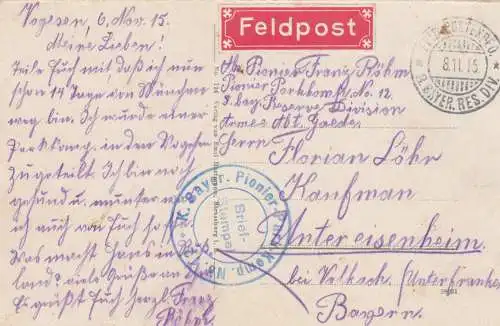 Vogesen, 6. Nov. 15.
Meine Lieben!
Teile Euch mit daß ich nun
schon 14 Tage von München
weg bin. Wurde einer
Parkkomp. in den Vogesen
zugeteilt. Ich bin noch
gesund u. munter was
ich auch von Euch hoffe.
Was macht Hans in
land? viele Grüße an
Es grüßt Euch herzl. Franz
Röhm.
Feldpost
8.11.15
8. BAYER. RES. DIV.
Abs. Pionier Franz Röhm
Pionier Parkkomp. No. 12
8. bay. Reserve Division
Armee Abt. Gaede.
Herrn
Florian Löhr
Kaufman
Untereisenheim.
bei Volkach. (Unterfranken
Bayern.
K. Bayer. Pionier Park Komp. No.
Brief-
stempel